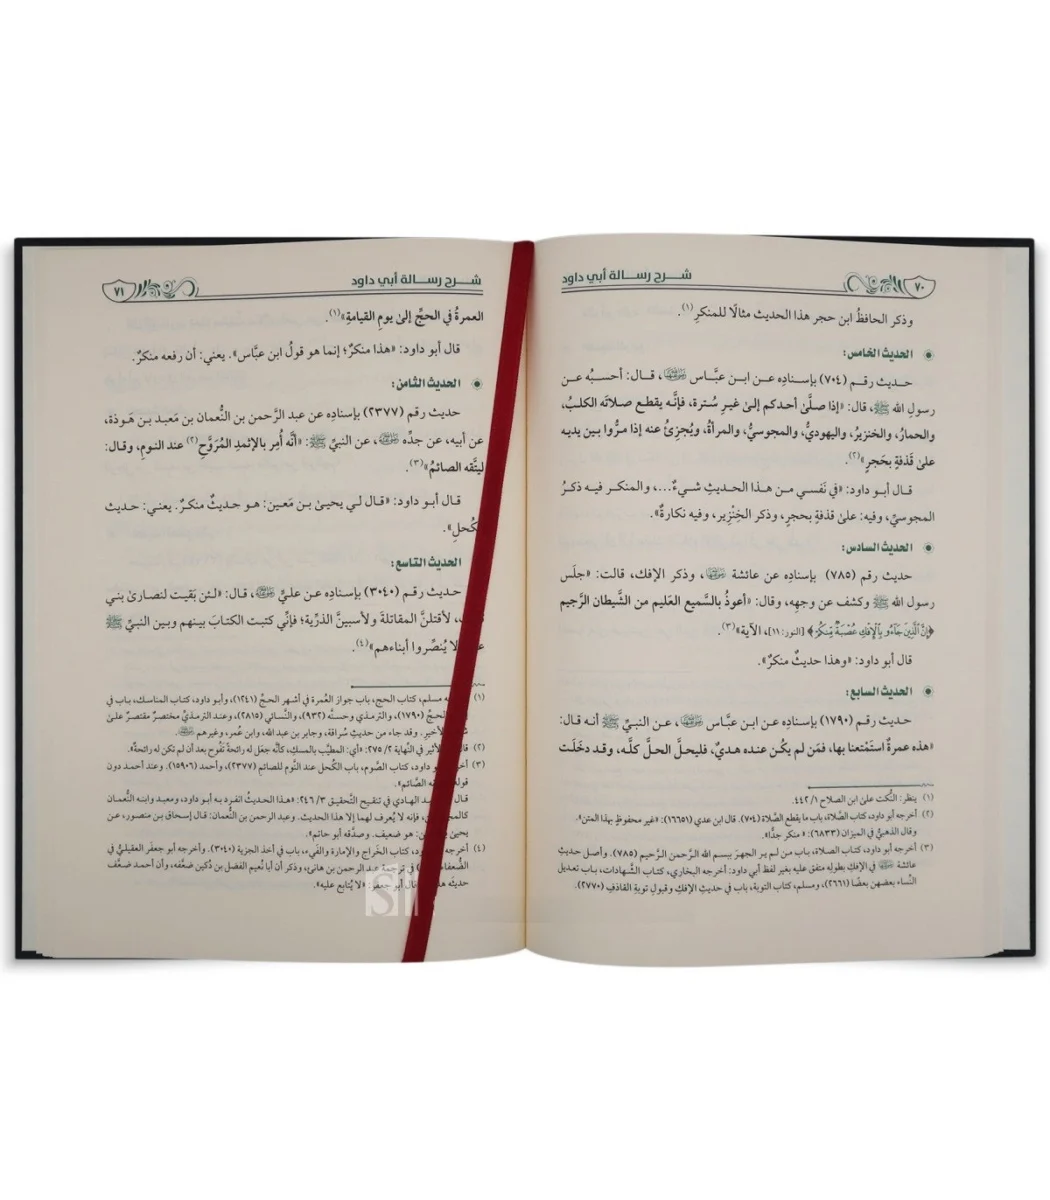 شرح رسالة أبي داود
٧٠
وذكر الحافظُ ابن حجر هذا الحديث مثالًا للمنكرِ(١).
الحديث الخامس:
حديث رقم (٧٠٤) بإسنادِه عن ابن عبَّاس رضي الله عنهما، قال: أحسبُه عن
رسولِ الله ﷺ، قال: «إذا صلَّىٰ أحدكم إلىٰ غيرِ سُترة، فإنَّه يقطع صلاتَه الكلبُ،
والحمارُ، والخنزيرُ، واليهوديُّ، والمجوسيُّ، والمرأةُ، ويُجزِئُ عنه إذا مرُّوا بين يديه
علىٰ قَذفةٍ بحَجرٍ»(٢).
قال أبو داود: «في نَفسي من هذا الحديثِ شيءٌ...، والمنكر فيه ذكرُ
المجوسيِّ، وفيه: علىٰ قذفةٍ بحجرٍ، وذكر الخِنْزِير، وفيه نكارةٌ».
الحديث السادس:
حديث رقم (٧٨٥) بإسنادِه عن عائشة رضي الله عنها، وذكر الإفك، قالت: «جلَس
رسول الله ﷺ وكشف عن وجهِه، وقال: «أعوذُ بالسَّميع العَليم من الشَّيطان الرَّجيم
﴿إِنَّ ٱلَّذِينَ جَآءُو بِٱلْإِفْكِ عُصْبَةٌ مِّنكُمْ﴾ [النور: ١١]، الآية»(٣).
قال أبو داود: «وهذا حديثٌ منكرٌ».
الحديث السابع:
حديث رقم (١٧٩٠) بإسنادِه عن ابن عبَّاس رضي الله عنهما، عن النبيِّ ﷺ أنه قال:
«هذه عمرةٌ استَمْتعنا بها، فمَن لم يكُن عنده هديٌ، فليحلَّ الحلَّ كلَّه، وقد دخَلَت
(١) ينظر: النُّكت علىٰ ابن الصلاح ١/ ٤٤٢.
(٢) أخرجه أبو داود، كتاب الصَّلاة، باب ما يقطع الصَّلاة (٧٠٤). قال ابن عدي (١٦٦٥١): «غير محفوظٍ بهذا المتن».
وقال الذهبيُّ في الميزان (٦٨٣٣): «منكر جدًّا».
(٣) أخرجه أبو داود، كتاب الصلاة، باب من لم ير الجهرَ ببسم الله الرَّحمن الرَّحيم (٧٨٥). وأصل حديثِ
عائشة رضي الله عنها في الإفكِ بطولِه متفق عليه بغير لفظ أبي داود: أخرجه البخاري، كتاب الشَّهادات، باب تعديل
النِّساء بعضهن بعضًا (٢٦٦١)، ومسلم، كتاب التوبة، باب في حديثِ الإفكِ وقبولِ توبةِ القاذفِ (٢٧٧٠).
شرح رسالة أبي داود
٧١
العمرةُ في الحجِّ إلىٰ يومِ القيامةِ»(١).
قال أبو داود: «هذا منكرٌ؛ إنما هو قولُ ابن عبَّاس». يعني: أن رفعه منكرٌ.
الحديث الثامن:
حديث رقم (٢٣٧٧) بإسنادِه عن عبد الرَّحمن بن النُّعمان بن مَعبد بن هَوذة،
عن أبيه، عن جدِّه رضي الله عنه، عن النبيِّ ﷺ: «أنَّه أُمِر بالإثمدِ المُرَوَّحِ(٢) عند النومِ، وقال:
ليتَّقه الصائمُ»(٣).
قال أبو داود: «قال لي يحيىٰ بن مَعين: هو حديثٌ منكرٌ. يعني: حديث
كُحلِ».
الحديث التاسع:
حديث رقم (٣٠٤٠) بإسنادِه عن عليٍّ رضي الله عنه، قال: «لئن بَقيت لنصارىٰ بني
لأقتلنَّ المقاتلةَ ولأسبينَّ الذرِّية؛ فإنِّي كتبت الكتابَ بينهم وبين النبيِّ ﷺ
لا يُنصِّروا أبناءهم»(٤).
(١) مسلم، كتاب الحج، باب جواز العُمرة في أشهر الحجِّ (١٢٤١)، وأبو داود، كتاب المناسك، باب في
الحجِّ (١٧٩٠)، والترمذي وحسنَّه (٩٣٢)، والنَّسائي (٢٨١٥)، وعند الترمذيِّ مختصرٌ مقتصرٌ علىٰ
الأخيرِ. وقد جاء من حديثِ سُراقة، وجابر بن عبد الله، وابن عُمر، وغيرهم رضي الله عنهم.
(٢) الأثير في النِّهاية ٢/ ٢٧٥: «أي: المطيَّب بالمسكِ، كأنَّه جعَل له رائحةً تَفُوح بعد أن لم تكن له رائحةٌ».
(٣) أبو داود، كتاب الصَّوم، باب الكُحل عند النَّوم للصائمِ (٢٣٧٧)، وأحمد (١٥٩٠٦). وعند أحمد دون
قوله الصَّائم».
قال الهادي في تنقيح التَّحقيق ٣/ ٢٤٦: «هذا الحديثُ انفرد به أبو داود، ومعبد وابنه النُّعمان
فإنه لا يُعرف لهما إلا هذا الحديث. وعبد الرحمن بن النُّعمان: قال إسحاق بن منصور، عن
يحيىٰ هو ضعيف. وصدَّقه أبو حاتم».
(٤) أخرجه كتاب الخَراج والإمارة والفَيء، باب في أخذ الجزية (٣٠٤٠). وأخرجه أبو جعفر العقيليُّ في
الضُّعفاء في ترجمة عبد الرحمن بن هانئ، وذكر أن أبا نُعيم الفضل بن دُكين ضعَّفه، وأن أحمد ضعَّف
حديثَه قال أبو جعفر: «لا يُتابع عليه».